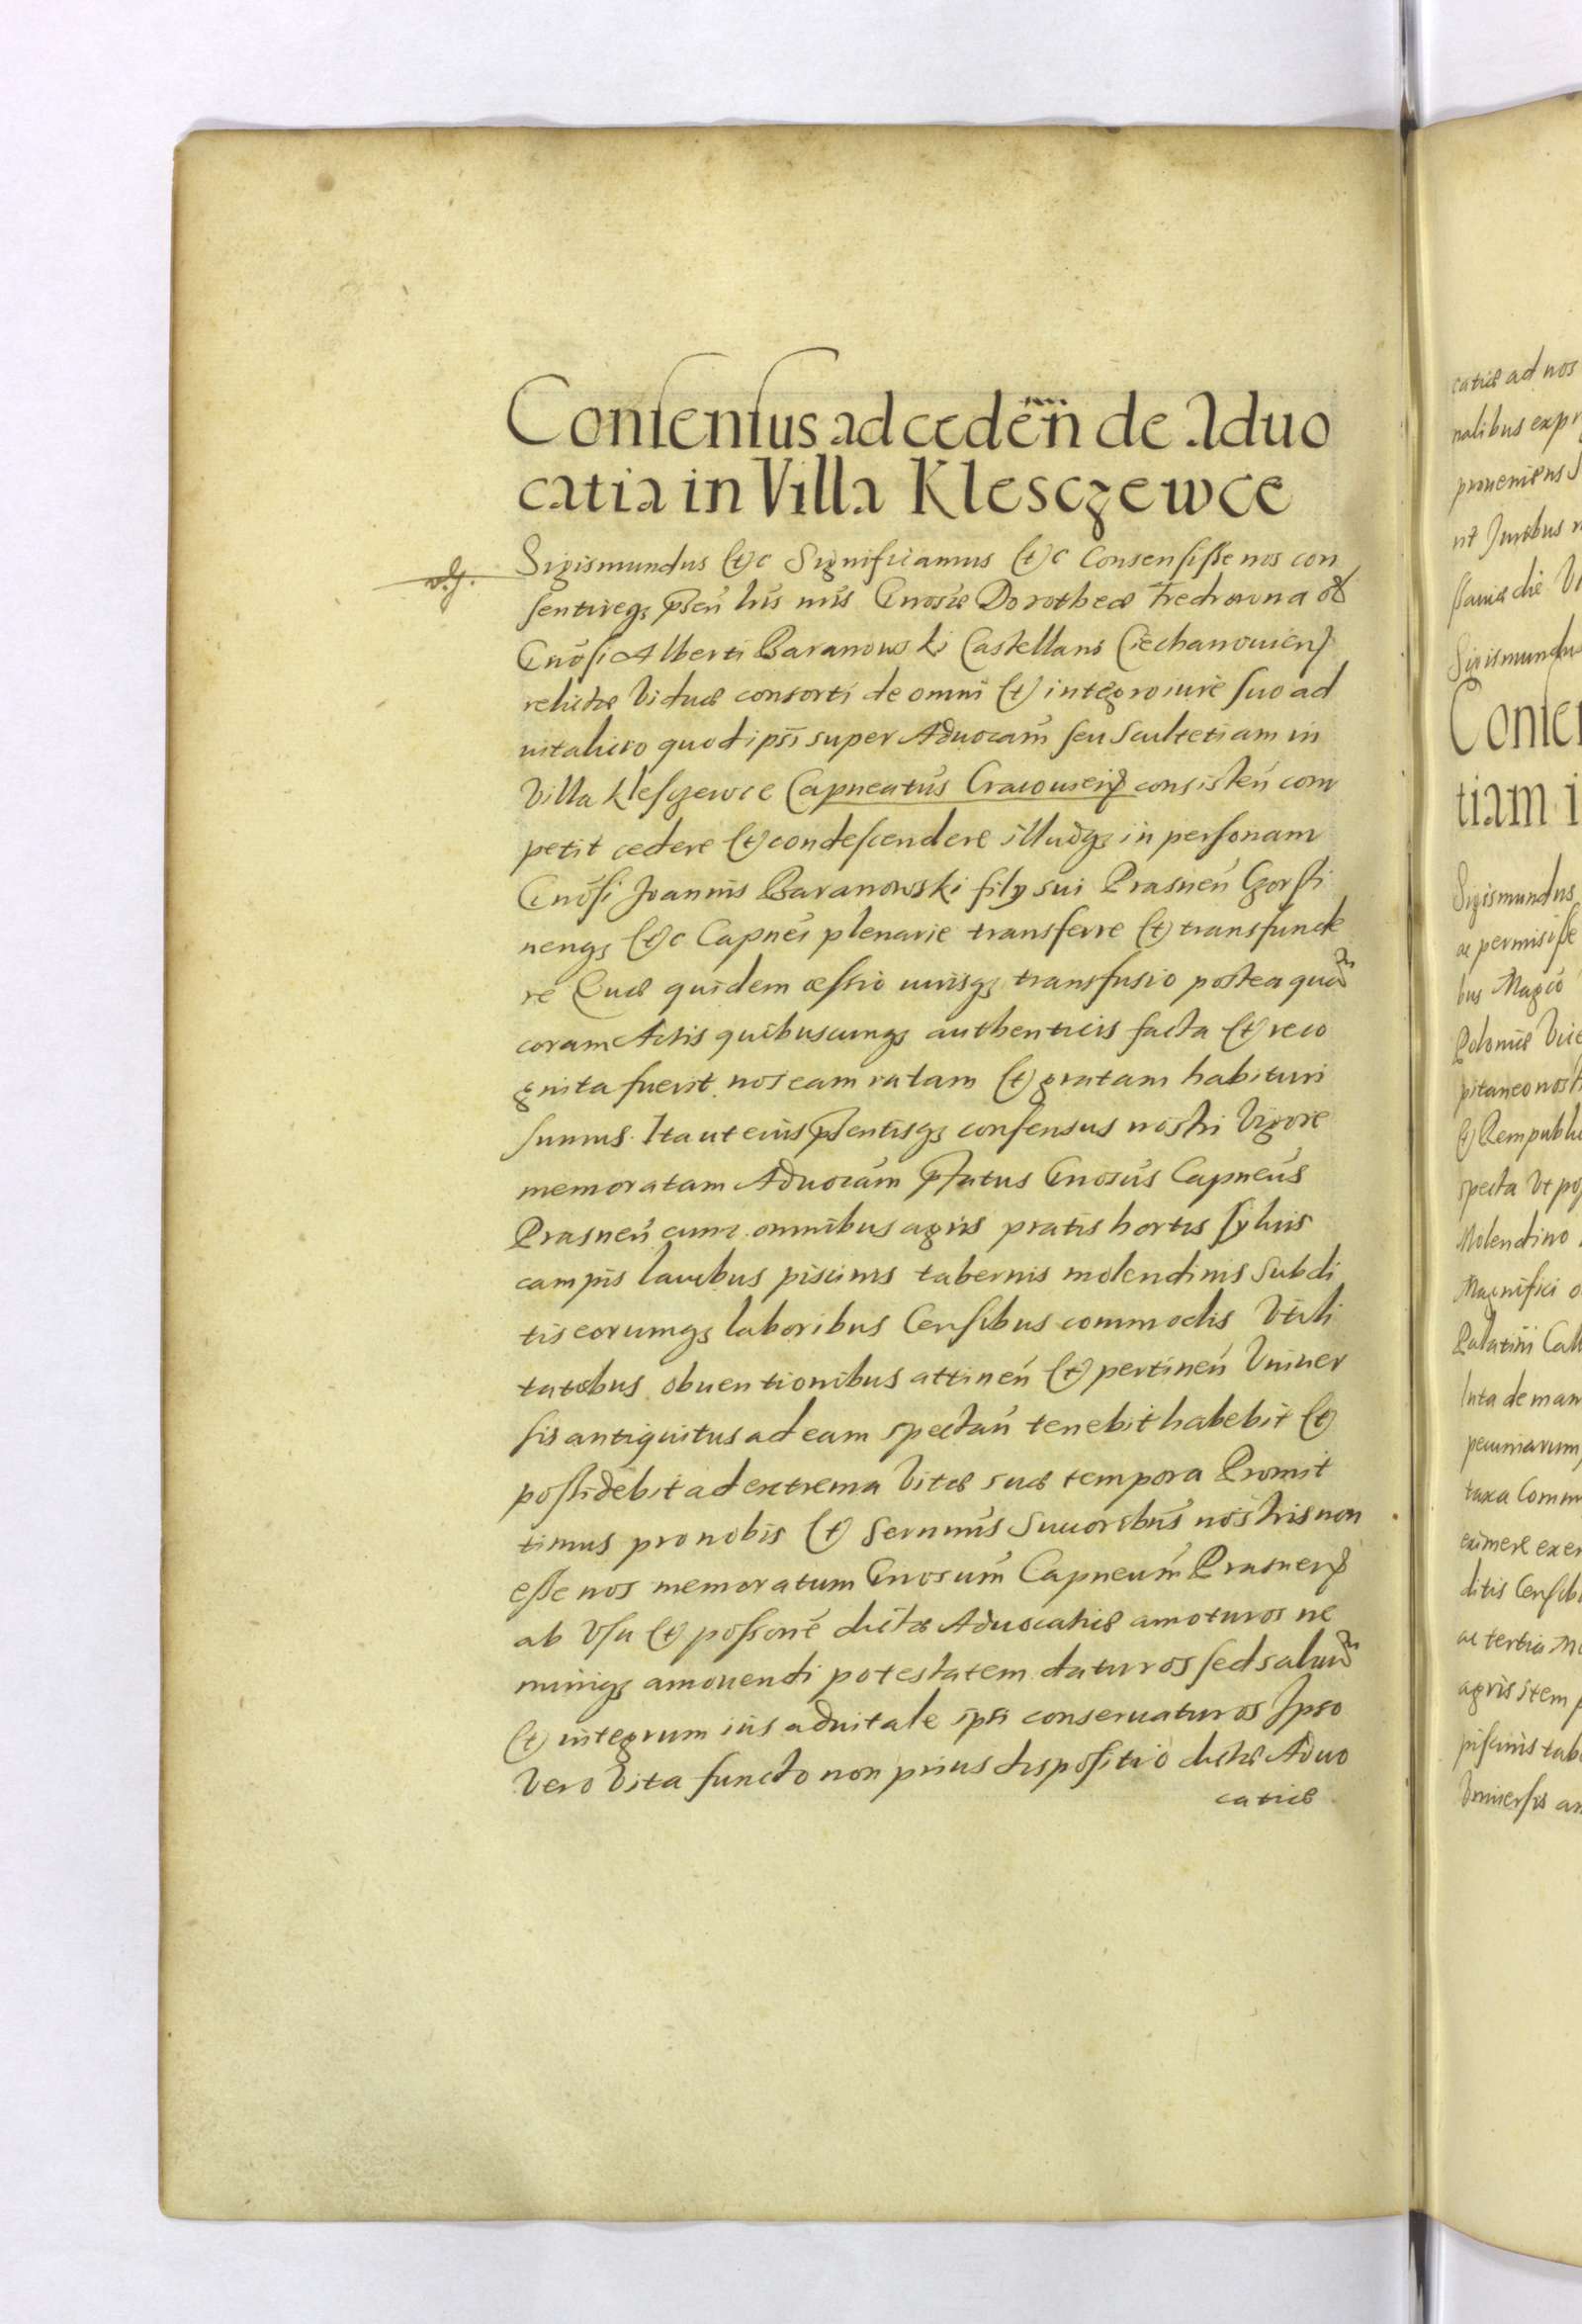 Consensus ad cedeñ de Aduo
catia in Villa Klesczewce
Sigismundus (et)c Significamus (et)c Consensisse nos con
sentireqз pñseñ lrĩs nrĩs Gnosæ Dorotheæ Fredrowna ol
Gnosi Alberti Baranowski Castellani Ciechanouien
relictæ Viduæ consorti de omni (et) integro iure suo ad
uitalicio quod ipsi super Aduocãm seu Scultetiam in
Villa Klesczewce Capneatus Cracouien consisteñ com
petit cedere (et) condescendere illudqз in personam
Gnosi Joannis Baranowski filij sui Prasneñ Gosti
nenqз (et)c Capnei plenarie transferre (et) transfunde
re Cuæ quidem cessio iurisqз transfusio postea quã
coram Actis quibuscunqз authenticis facta (et) reco
gnita fuerit nos eam ratam (et) gratam habituri
sumus. Ita ut eius pñsentisqз consensus nostri Vigore
memoratam Aduocãm pfatus Gnosus Capneus
Prasneñ cum omnibus agris pratis hortis syluis
campis lacubus piscinis tabernis molendinis Subdi
tis eorumqз laboribus Censibus commodis Vtili
tatibus obuentionibus attineñ (et) pertineñ Vniuer
sis antiquitus ad eam spectañ tenebit habebit (et)
possidebit ad extrema Vitæ suæ tempora Promit
timus pro nobis (et) Sernmis Succoribus nostris non
esse nos memoratum Gnosum Capneum Prasnen
ab Vsu (et) possone dictæ Aduocatiæ amoturos ne
miniqз amouendi potestatem daturos sed saluũ
(et) integrum ius aduitale ipsi conseruaturos Ipso
Vero Vita functo non prius dispositio dictæ Aduo
catiæ
catiæ ad nos
Sigismundus
Consen
tiam i
Sigismundus
ac permisisse
bus Magco
Poloniæ Vice
pitaneo nost
(et) Rempubli
specta Vt po
Molendino
Magnifici
Palatini Cal
luta de man
pecuniarum
taxa Comm
eximere exe
ditis Censib
ac tertia
agris item
piscinis tab
Vniuersis an